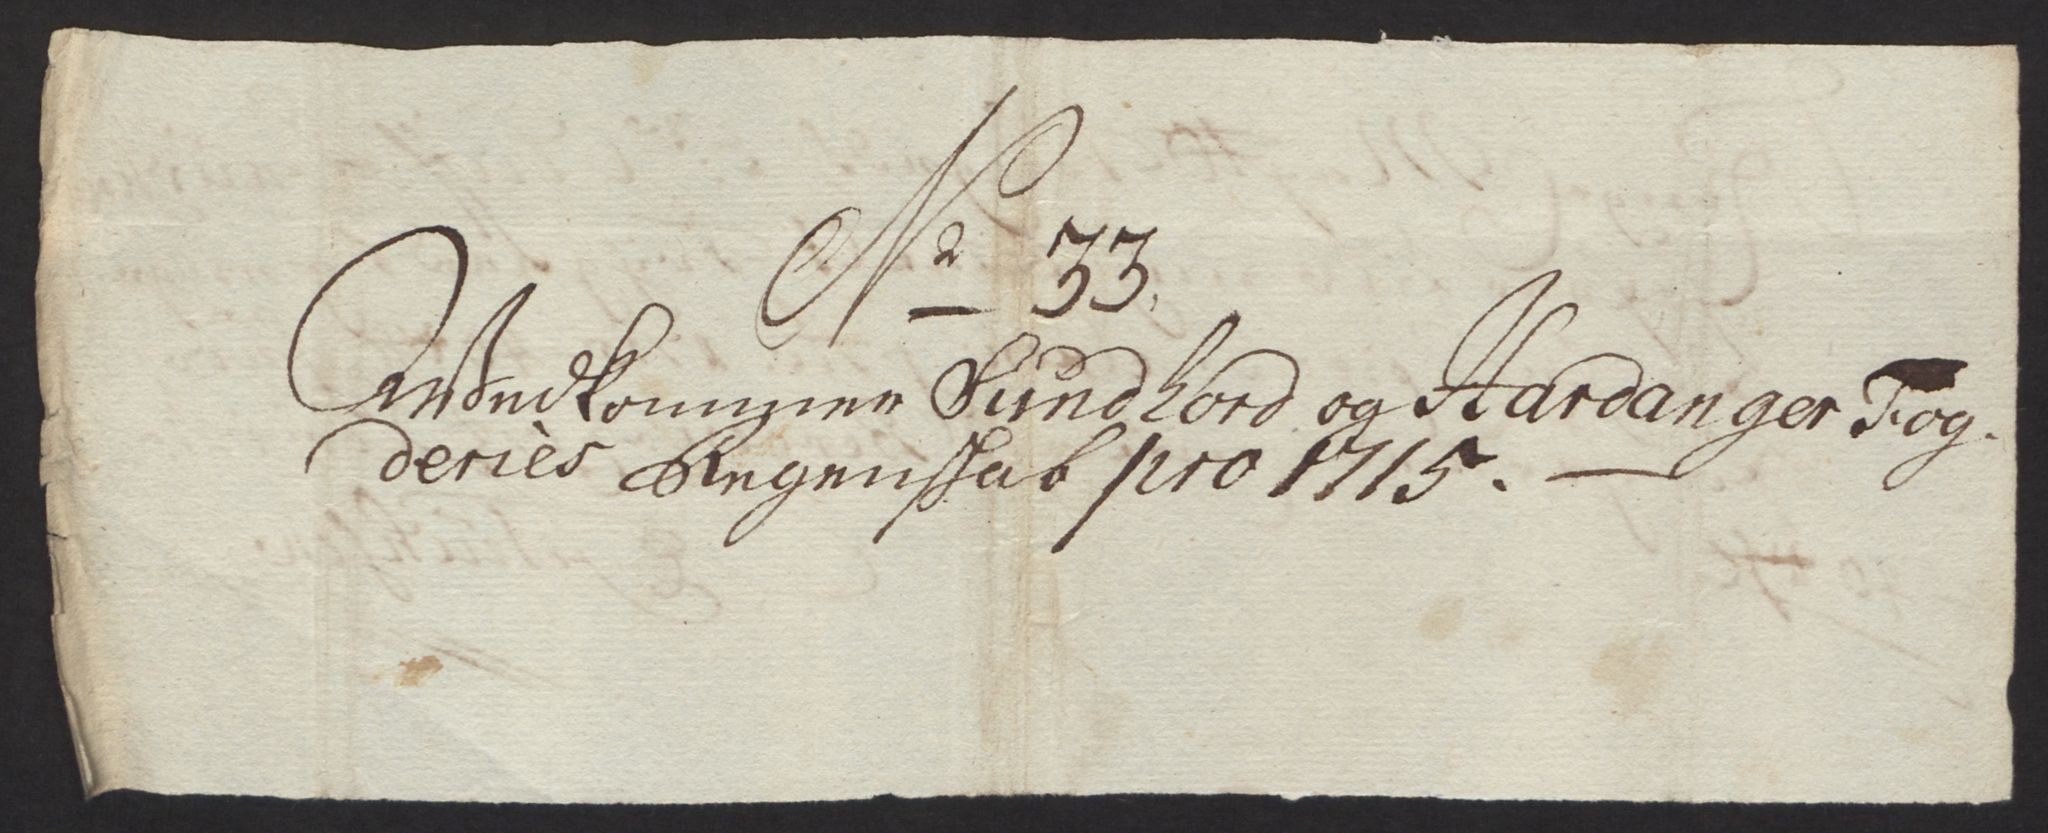 No 33.
Vedkommer Sundhord og Hardanger Fog-
deries Regenskab pro 1715.